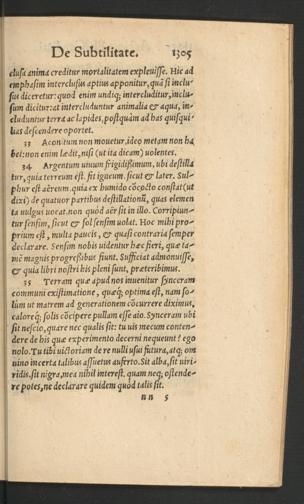 De Subtilitate. 1305
clusa anima creditur mortalitatem expleuisse. Hic ad
emphasim interclusus aptius apponitur, quàm si inclu-
sus diceretur: quod enim undiq; intercluditur, inclu-
sum dicitur: at intercluduntur animalia & aqua, in-
cluduntur terra ac lapides, postquàm ad has quisqui-
lias descendere oportet.
33 Aconitum non mouetur, ideo metam non ha
bet: non enim lædit, nisi (ut ita dicam) uolentes.
34 Argentum uiuum frigidißimum, ubi destilla
tur, quia terreum est. sit igneum. sicut & later. Sul-
phur est aëreum. quia ex humido cōcocto constat (ut
dixi) de quatuor partibus destillationū, quas elemen
ta uulgus uocat. non quòd aër sit in illo. Corripiun-
tur sensim, sicut & sol sensim uolat. Hoc mihi pro-
prium est, multa paucis, & quasi contraria semper
declarare. Sensim nobis uidentur hæc fieri, quæ ta-
mē magnis progreßibus fiunt. Sufficiat admonuisse,
& quia libri nostri his pleni sunt, præteribimus.
35 Terram quæ apud nos inuenitur synceram
communi existimatione, quæq; optima est, nam so-
lum ut matrem ad generationem cōcurrere diximus,
caloreq; solis cōcipere pullam esse aio. Synceram ubi
sit nescio, quare nec qualis sit: tu uis mecum conten-
dere de his quæ experimento decerni nequeunt? ego
nolo. Tu tibi uictoriam de re nulli usui futura, atq; om
nino incerta talibus assuetus auferto. Sit alba, sit uiri-
ridis, sit nigra, mea nihil interest, quam neq; ostende-
re potes, ne declarare quidem quòd talis sit.
nn 5